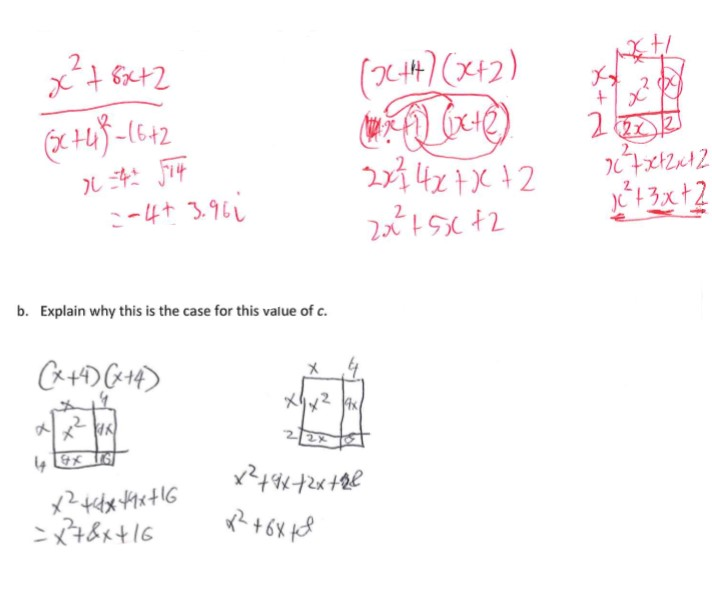 x² + 8x+2
(x+4)² -16+2
x = -4± √14
= -4+ 3.96i
(x+4)(x+2)
(x+2)
2x²+ 4x + x + 2
2x² + 5x + 2
x +1
x x² x
+
2 2x 2
x²+x+2x+2
x²+3x+2
b. Explain why this is the case for this value of c.
(x+4)(x+4)
x 4
x x² 4x
4 4x 16
x² +4x+4x+16
= x²+8x+16
x 4
x x² 4x
2 2x 8
x²+4x+2x+8
x² +6x+8